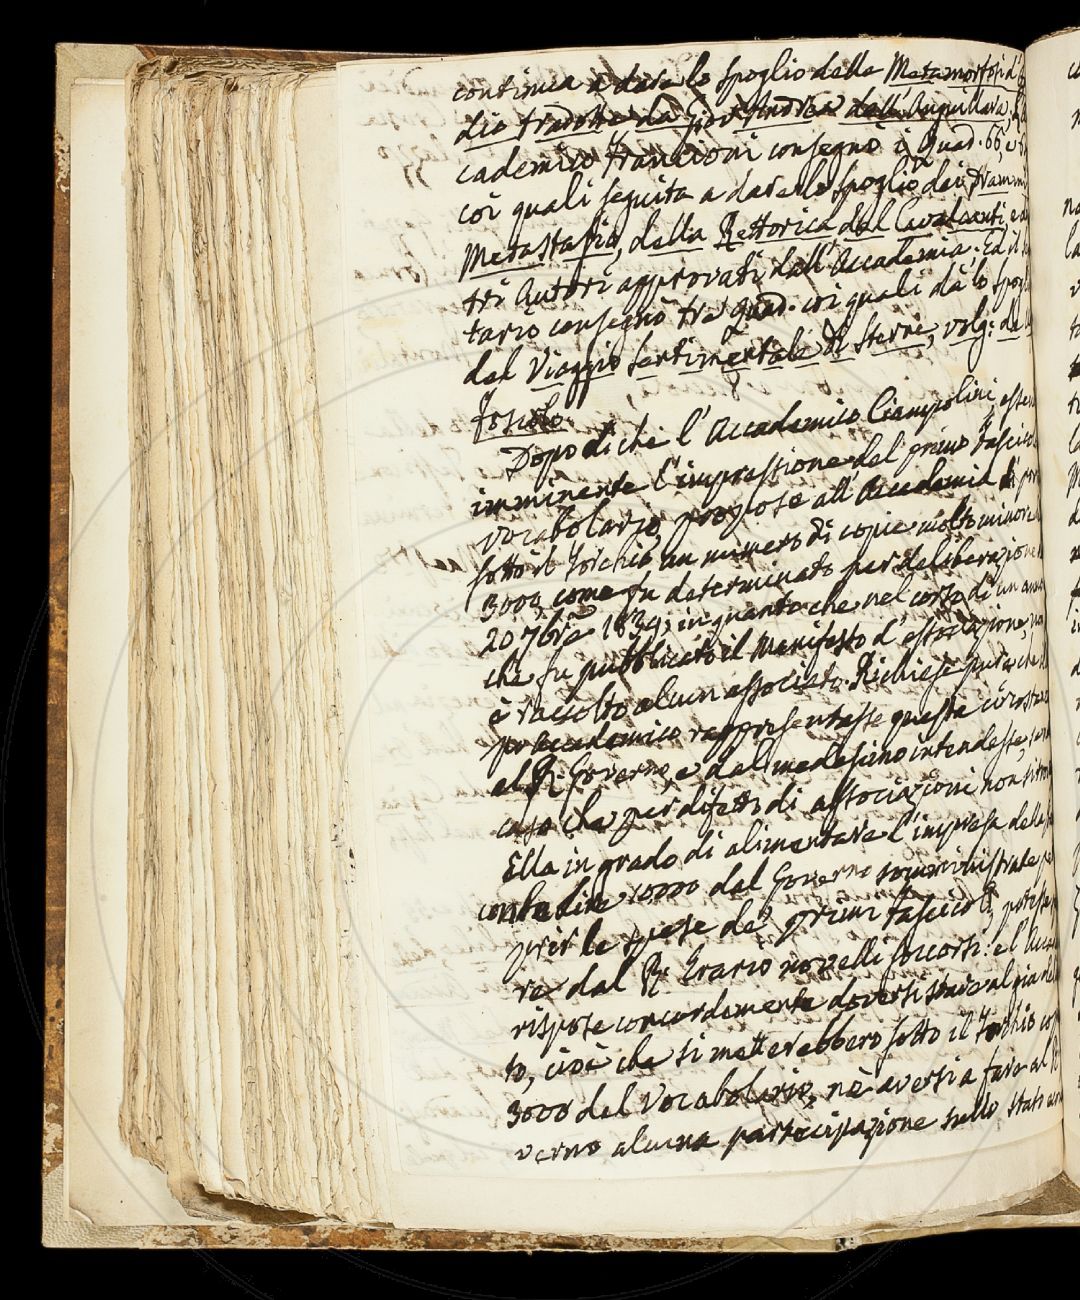 continua a dare lo spoglio delle Metamorfosi d'
dio tradotte da Giov: Andrea dall'Anguillara.
cademico Franzioni consegnò i Quad. 66,
coi quali seguita a dare lo spoglio dei Drammi
Metastasio, della Rettorica del Cavalcanti e
tri Autori approvati dall'Accademia. Ed il
tario consegnò tre Quad. coi quali dà lo spog
del Viaggio sentimentale di Sterne, volg: da
Foscolo.
Dopo di che l'Accademico Ciampolini, essen
imminente l'impressione del primo Fascico
Vocabolario, propose all'Accademia di por
sotto il Torchio un numero di copie molto minore
3000, come fu determinato per deliberazione
20 7bre 1839; in quanto che nel corso di un anno
che fu pubblicato il Manifesto d'associazione, non
è raccolto alcun associato. Richiese pure che
po Accademico rappresentasse questa circostanz
al R. Governo, e dal medesimo intendesse, se
caso che per difetto di associazioni non si trov
Ella in grado di alimentare l'impresa della
con le lire 10000 dal Governo somministrate pe
prir le spese de' primi fascicoli, potesse
re dal R. Erario novelli soccorsi: e l'Acca
rispose concordemente doversi stare al già de
to, cioè che si metterebbero sotto il Torchio cop
3000 del Vocabolario, nè aversi a fare al R
verno alcuna partecipazione sullo stato